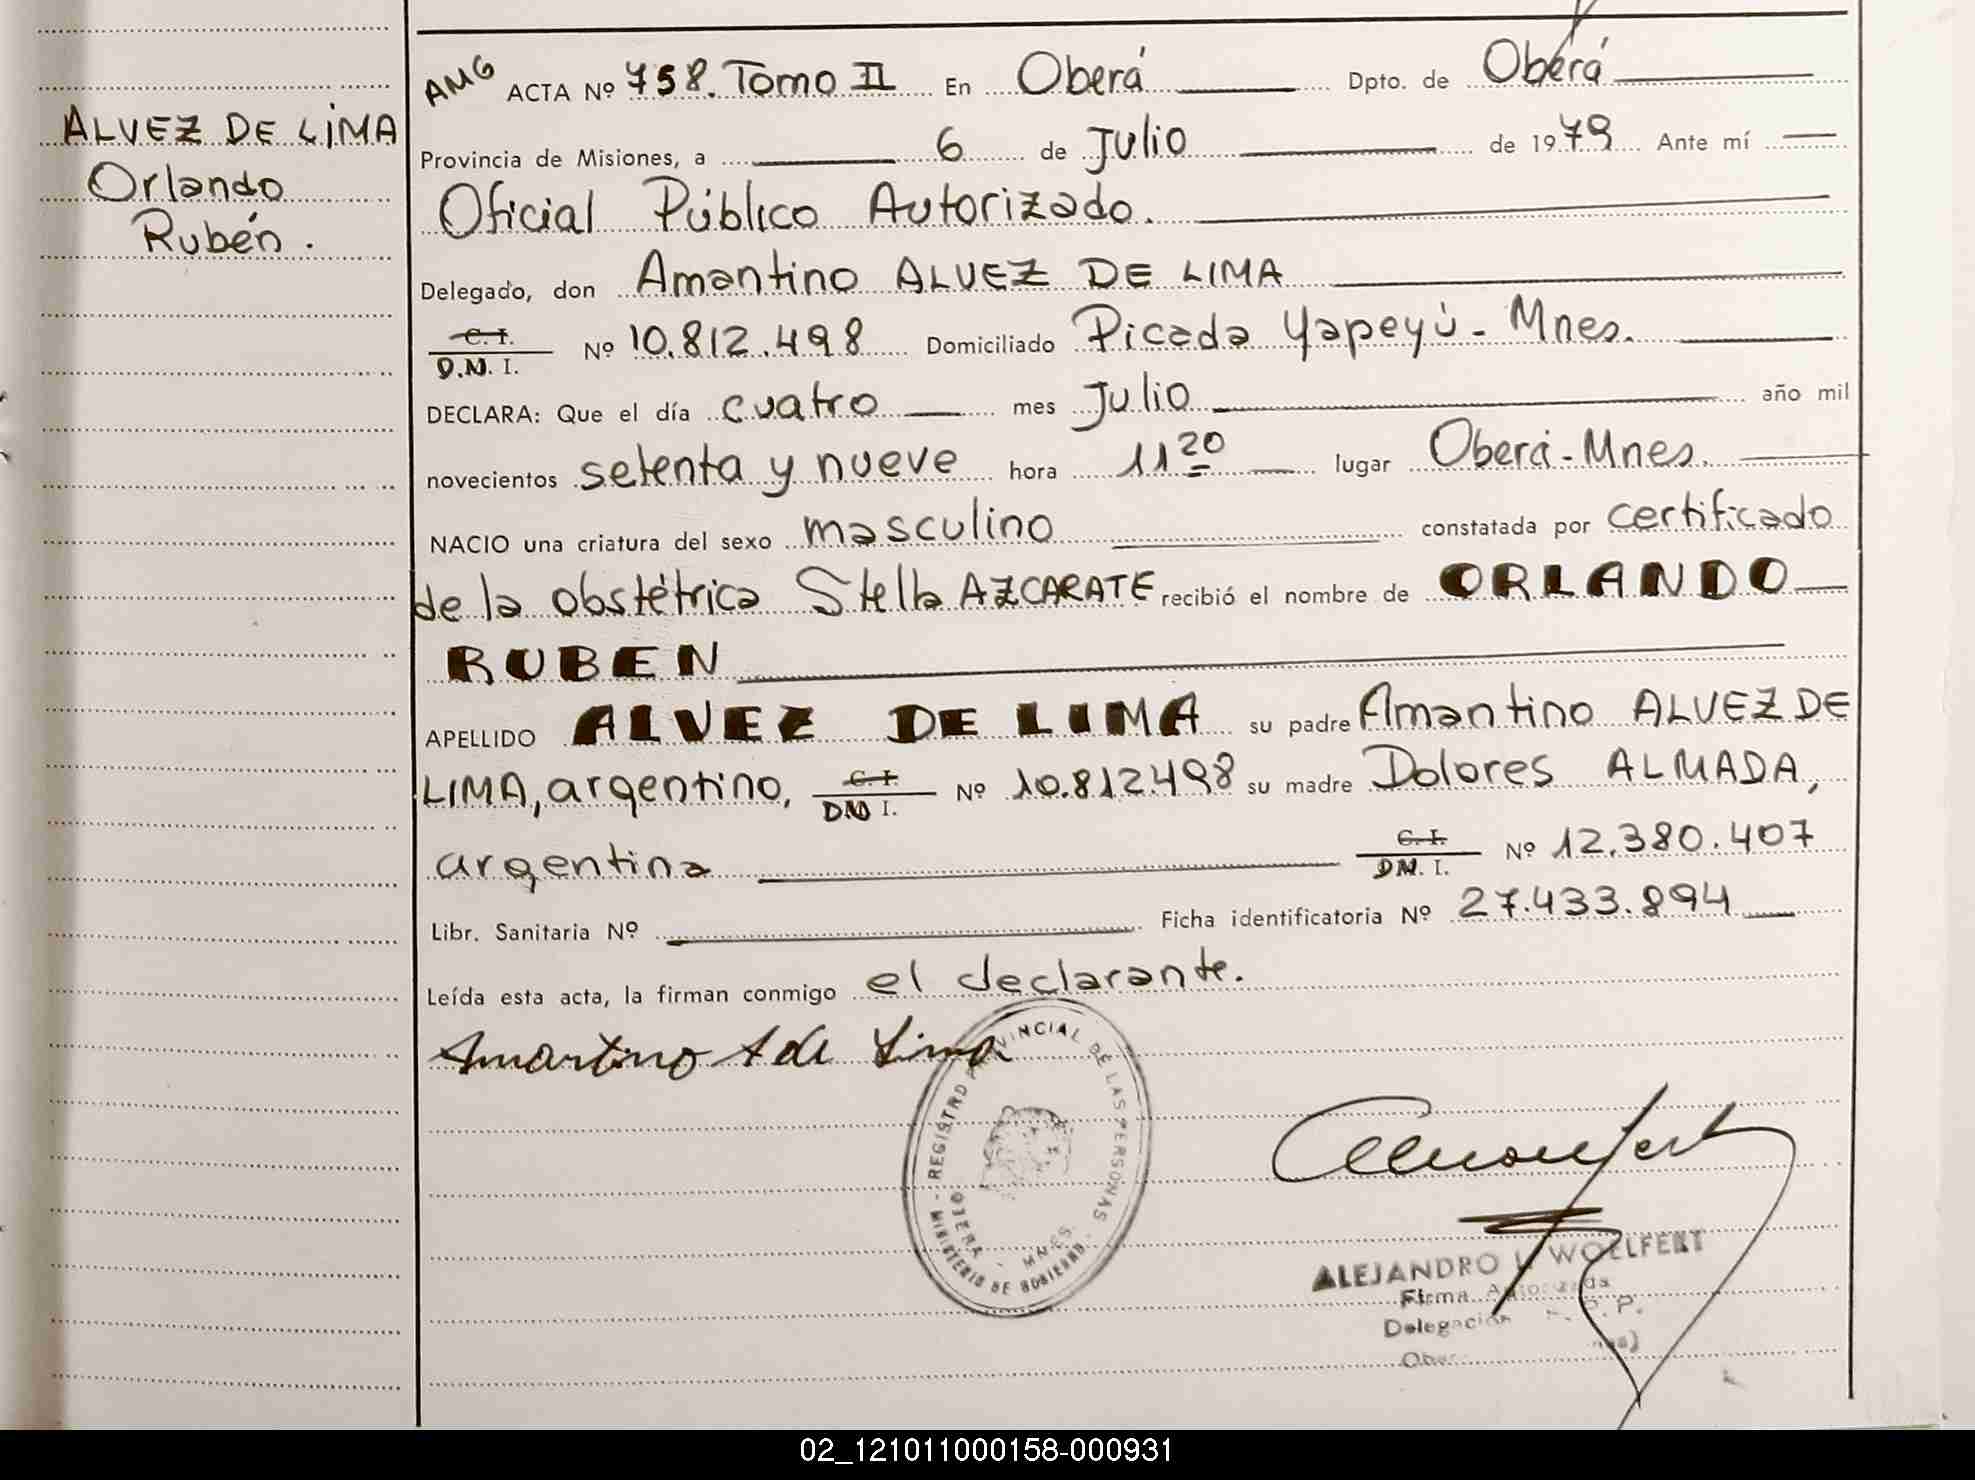 ALVEZ DE LIMA
Orlando
Rubén.
AMG ACTA Nº 758. Tomo II En Oberá Dpto. de Oberá
Provincia de Misiones, a 6 de Julio de 1979 Ante mí
Oficial Público Autorizado.
Delegado, don Amantino ALVEZ DE LIMA
C. I.
D.N. I. Nº 10.812.498 Domiciliado Picada Yapeyú - Mnes.
DECLARA: Que el día cuatro mes Julio año mil
novecientos setenta y nueve hora 11 20 lugar Oberá - Mnes.
NACIO una criatura del sexo masculino constatada por certificado
de la obstétrica Stella AZCARATE recibió el nombre de ORLANDO
RUBEN
APELLIDO ALVEZ DE LIMA su padre Amantino ALVEZ DE
LIMA, argentino, C. I. DN I. Nº 10.812.498 su madre Dolores ALMADA,
argentina C. I. DN. I. Nº 12.380.407
Libr. Sanitaria Nº Ficha identificatoria Nº 27.433.894
Leída esta acta, la firman conmigo el declarante.
Amantino A de Lima
REGISTRO PROVINCIAL DE LAS PERSONAS
MINISTERIO DE GOBIERNO
MNES.
ALEJANDRO WOELFERT
Firma Autorizada
Delegación
02_121011000158-000931